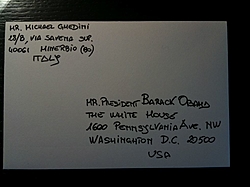 MR. MICHAEL GHEDINI
28/B, VIA SAVENA SUP.
40061 MINERBIO (BO)
ITALY
MR. PRESIDENT BARACK OBAMA
THE WHITE HOUSE
1600 PENNSYLVANIA AVE. NW
WASHINGHTON D.C. 20500
USA